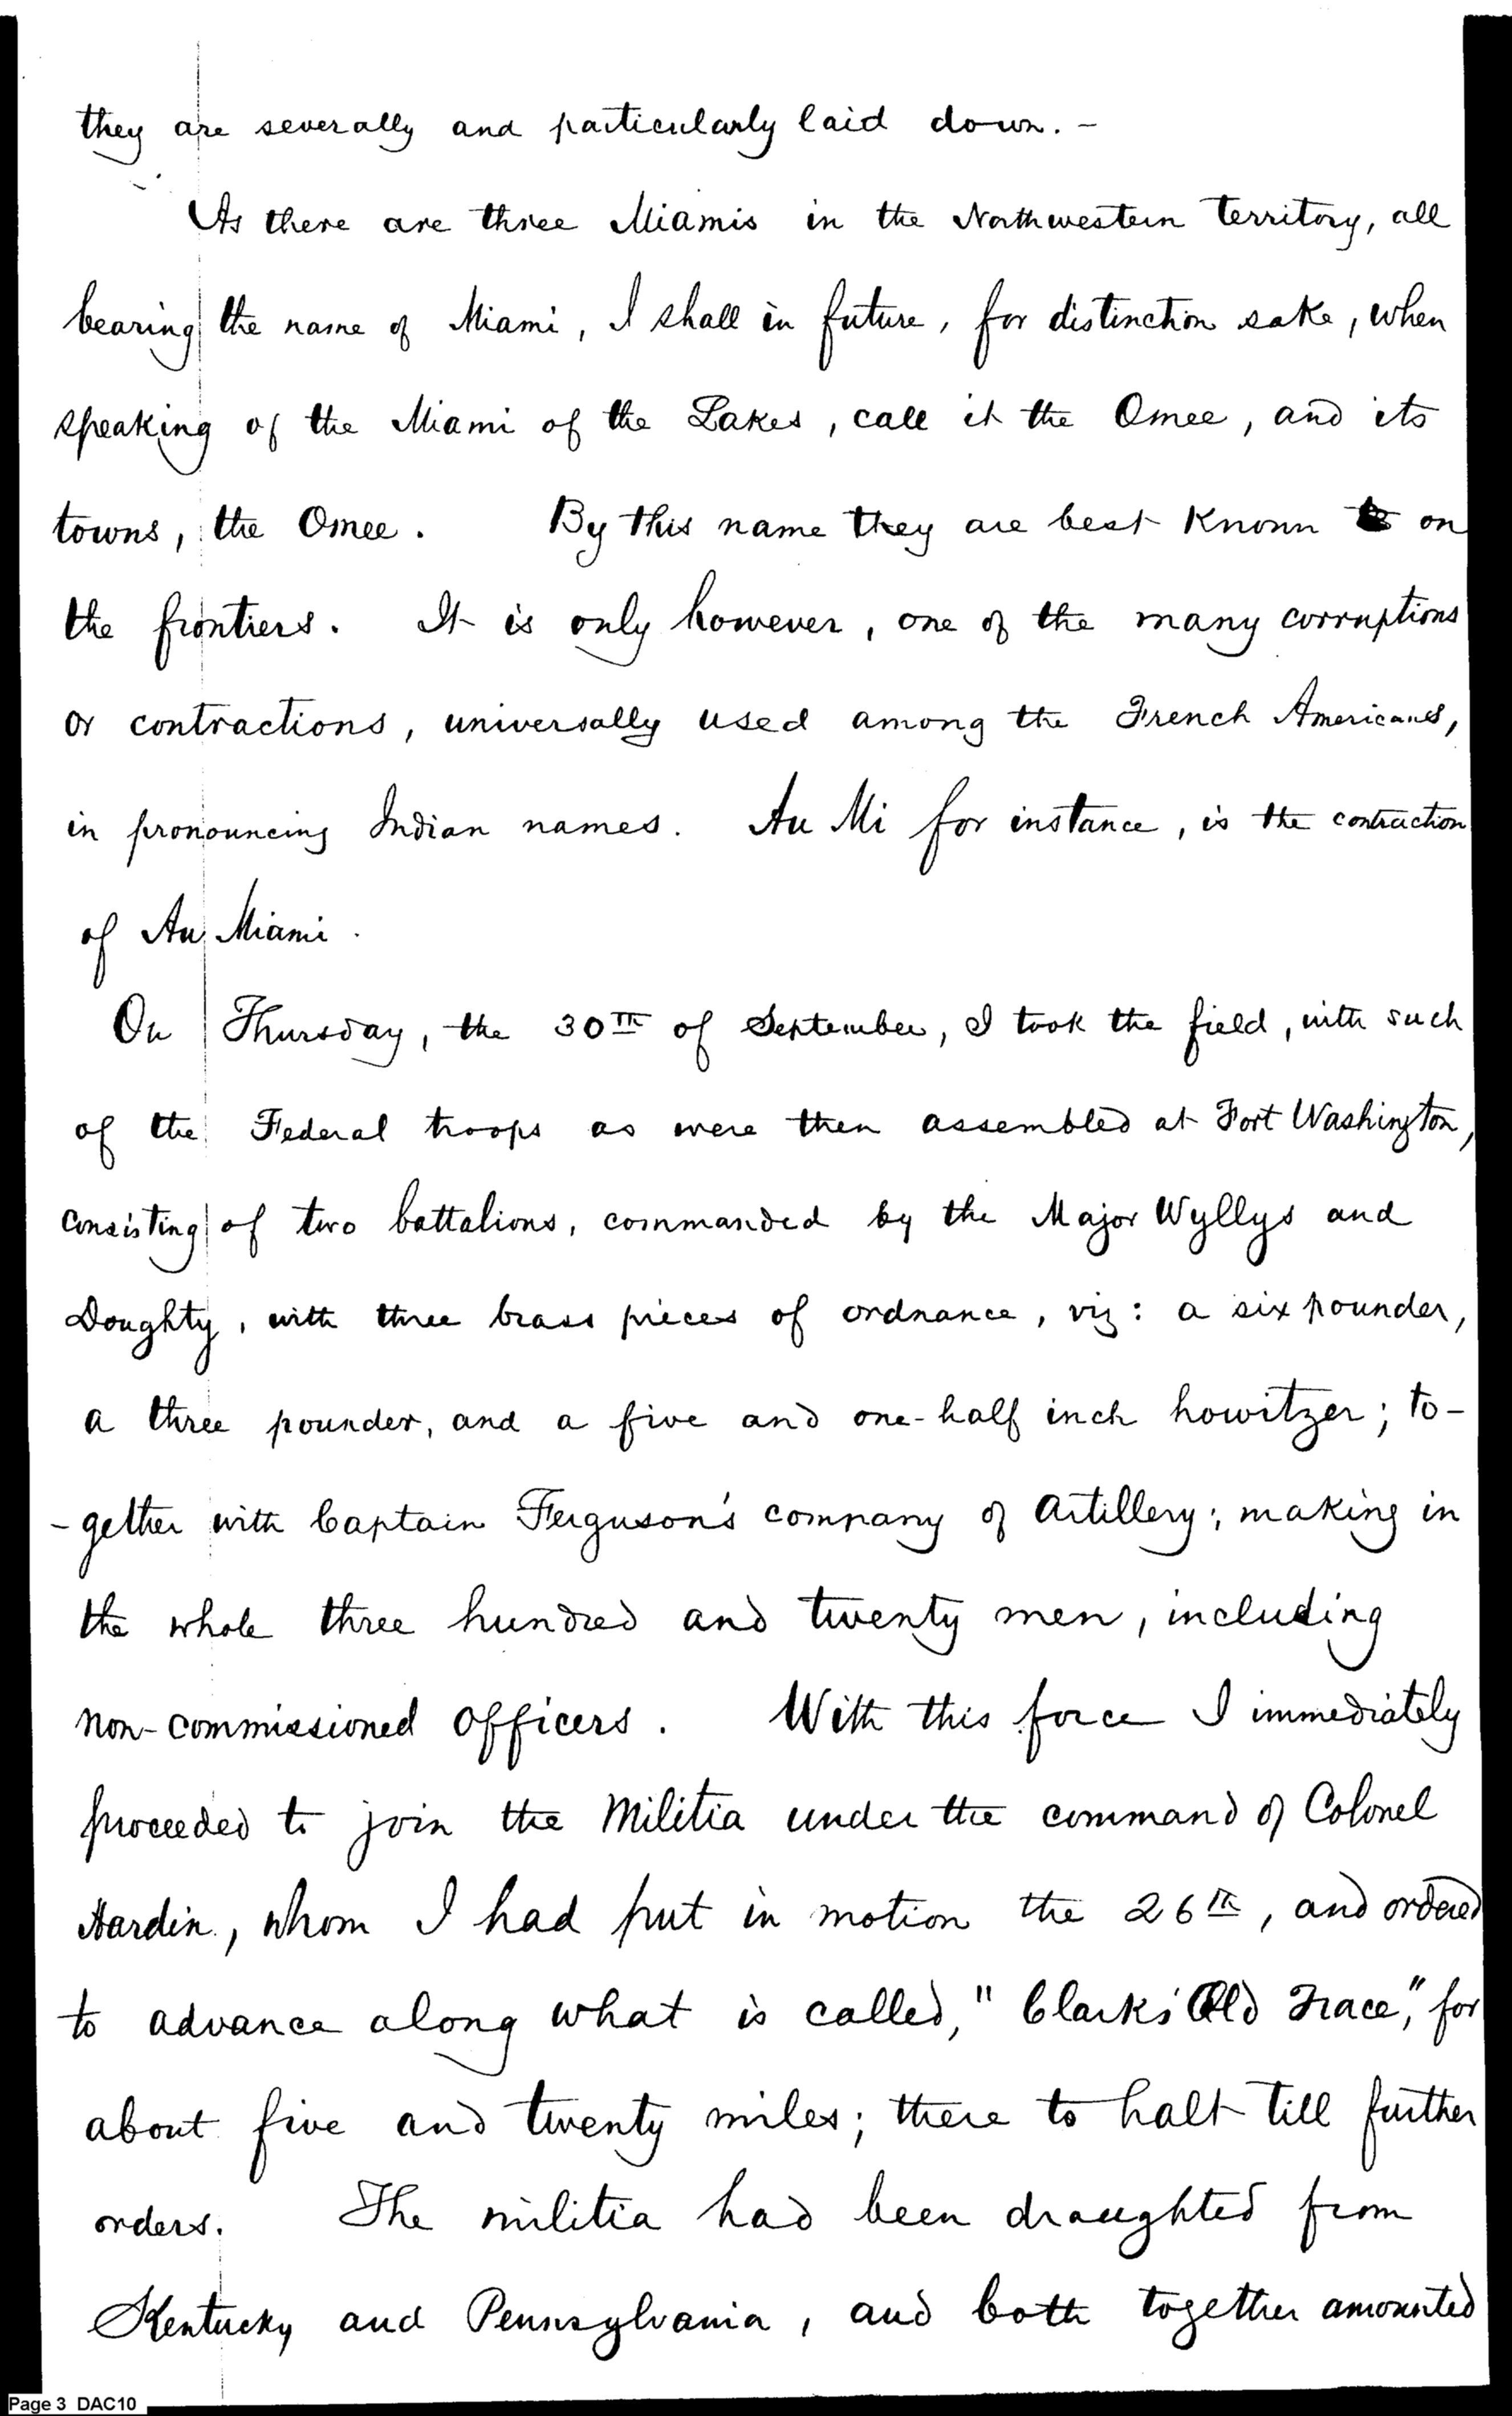 they are severally and particularly laid down. -
As there are three Miamis in the Northwestern territory, all
bearing the name of Miami, I shall in future, for distinction sake, when
speaking of the Miami of the Lakes, call it the Omee, and its
towns, the Omee. By this name they are best known on
the frontiers. It is only however, one of the many corruptions
or contractions, universally used among the French Americans,
in pronouncing Indian names. Au Mi for instance, is the contraction
of Au Miami.
On Thursday, the 30TH of September, I took the field, with such
of the Federal troops as were then assembled at Fort Washington,
consisting of two battalions, commanded by the Major Wyllys and
Doughty, with three brass pieces of ordnance, viz: a six pounder,
a three pounder, and a five and one-half inch howitzer; to-
-gether with Captain Ferguson's company of Artillery; making in
the whole three hundred and twenty men, including
non-commissioned officers. With this force I immediately
proceeded to join the Militia under the command of Colonel
Hardin, whom I had put in motion the 26th, and ordered
to advance along what is called, "Clark's Old Trace," for
about five and twenty miles; there to halt till further
orders. The militia had been draughted from
Kentucky and Pennsylvania, and both together amounted
Page 3 DAC10